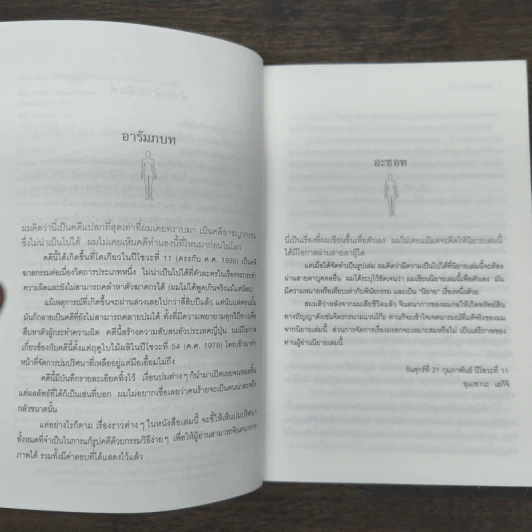 อารัมภบท
ผมคิดว่านี่เป็นคดีแปลกที่สุดเท่าที่ผมเคยทราบมา เป็นคดีอาชญากรรม
ซึ่งไม่น่าเป็นไปได้ ผมไม่เคยเห็นคดีทำนองนี้ที่ไหนมาก่อนในโลก
คดีนี้ได้เกิดขึ้นที่โตเกียวในปีโชวะที่ 11 (ตรงกับ ค.ศ. 1936) เป็นคดี
ฆาตกรรมต่อเนื่องวิตถารประเภทหนึ่ง ไม่น่าเป็นไปได้ที่ตัวละครในเรื่องจะกระทำ
ความผิดและยังไม่สามารถคลำหาตัวฆาตกรได้ (ผมไม่ได้พูดเกินจริงแม้แต่น้อย)
แม้เหตุการณ์ที่เกิดขึ้นจะผ่านล่วงเลยไปกว่าสี่สิบปีแล้ว แต่นับแต่ตอนนั้น
มันก็กลายเป็นคดีที่ยังไม่สามารถคลายปมได้ ทั้งที่มีความพยายามทุกวิถีทางเพื่อ
สืบหาตัวผู้กระทำความผิด คดีนี้สร้างความสับสนทั่วประเทศญี่ปุ่น ผมมีโอกาส
เกี่ยวข้องกับคดีนี้ตั้งแต่ฤดูใบไม้ผลิในปีโชวะที่ 54 (ค.ศ. 1979) โดยเข้ามาทำ
หน้าที่จัดการปมปริศนาที่เหลืออยู่แต่มือเอื้อมไม่ถึง
คดีนี้มีบันทึกรายละเอียดทิ้งไว้ เงื่อนปมต่างๆ ก็นำมาเปิดเผยจนหมดสิ้น
แต่ผลลัพธ์ที่ได้ก็เป็นเช่นที่บอก ผมไม่อยากเชื่อเลยว่าคนร้ายจะเป็นคนน่าสะพรึง
กลัวขนาดนั้น
แต่อย่างไรก็ตาม เรื่องราวต่างๆ ในหนังสือเล่มนี้ จะชี้ให้เห็นปมปริศนา
ทั้งหมดที่จำเป็นในการแก้รูปคดีด้วยกรรมวิธีง่ายๆ เพื่อให้ผู้อ่านสามารถจินตนาการ
ภาพได้ รวมทั้งมีคำตอบที่ได้แสดงไว้แล้ว
อะซอท
นี่เป็นเรื่องที่ผมเขียนขึ้นเพื่อตัวเอง ผมไม่เคยแม้แต่จะคิดให้นิยายเล่มนี้
ได้มีโอกาสผ่านสายตาผู้ใด
แต่เมื่อได้จัดทำเป็นรูปเล่ม ผมคิดว่าความเป็นไปได้ที่นิยายเล่มนี้จะต้อง
ผ่านสายตาบุคคลอื่น ผมได้ระบุไว้ชัดเจนว่า ผมเขียนนิยายเล่มนี้เพื่อตัวเอง มัน
มีความหมายหรือเทียบเท่ากับพินัยกรรม และเป็น "นิยาย" เรื่องหนึ่งด้วย
สมมติว่าหลังจากผมเสียชีวิตแล้ว จินตนาการของผมก่อให้เกิดทรัพย์สิน
ทางปัญญาดังเช่นศิลปกรรมนามแวนโก๊ะ ท่านก็จะเข้าใจเจตนารมณ์ที่แท้จริงของผม
จากนิยายเล่มนี้ ส่วนการจัดการเรื่องมรดกจะเหมาะสมหรือไม่ เป็นเสรีภาพของ
ท่านผู้อ่านนิยายเล่มนี้
วันศุกร์ที่ 21 กุมภาพันธ์ ปีโชวะที่ 11
อุเมซาวะ เฮกิจิ